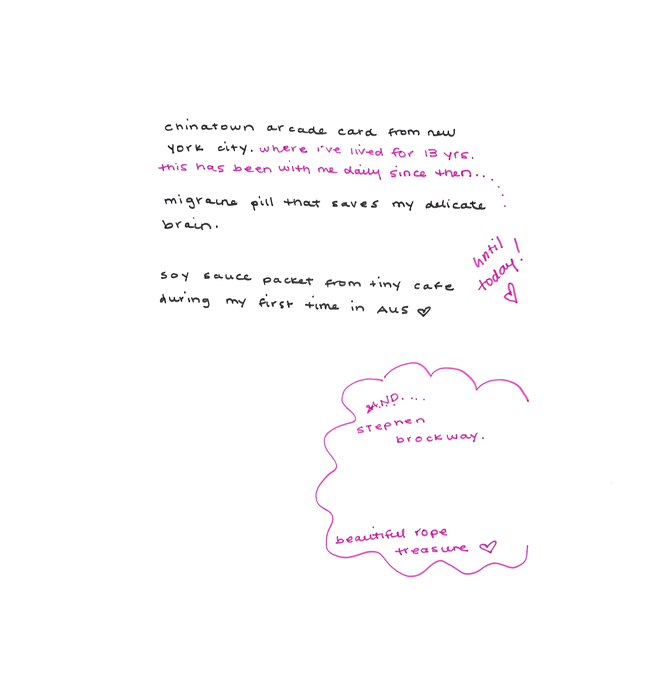 chinatown arcade card from new
york city. where i've lived for 13 yrs.
this has been with me daily since then.......
until
today!
♡
migraine pill that saves my delicate
brain.
soy sauce packet from tiny cafe
during my first time in AUS ♡
AND....
stephen
brockway.
beautiful rope
treasure ♡